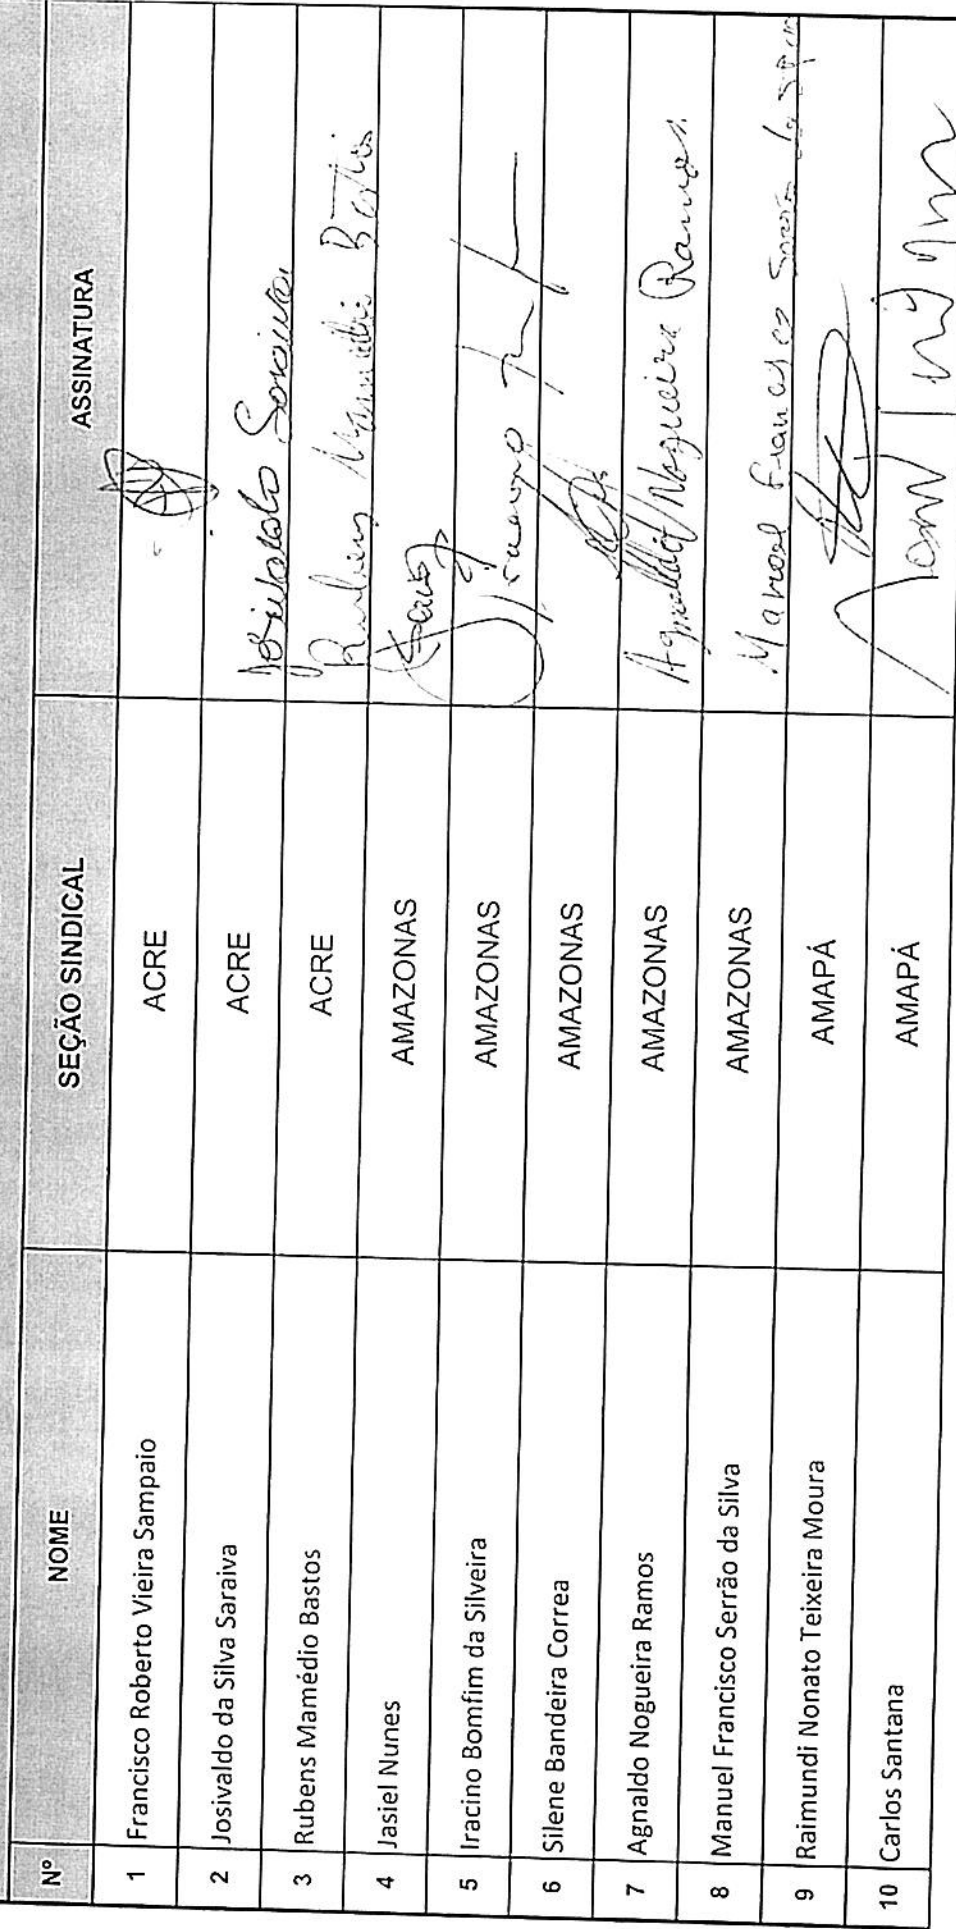 Nº NOME SEÇÃO SINDICAL ASSINATURA
1 Francisco Roberto Vieira Sampaio ACRE
2 Josivaldo da Silva Saraiva ACRE Josivaldo Saraiva
3 Rubens Mamédio Bastos ACRE Rubens Mamédio Bastos
4 Jasiel Nunes AMAZONAS
5 Iracino Bomfim da Silveira AMAZONAS
6 Silene Bandeira Correa AMAZONAS
7 Agnaldo Nogueira Ramos AMAZONAS Agnaldo Nogueira Ramos
8 Manuel Francisco Serrão da Silva AMAZONAS Manoel Francisco Serrão da Silva
9 Raimundi Nonato Teixeira Moura AMAPÁ
10 Carlos Santana AMAPÁ